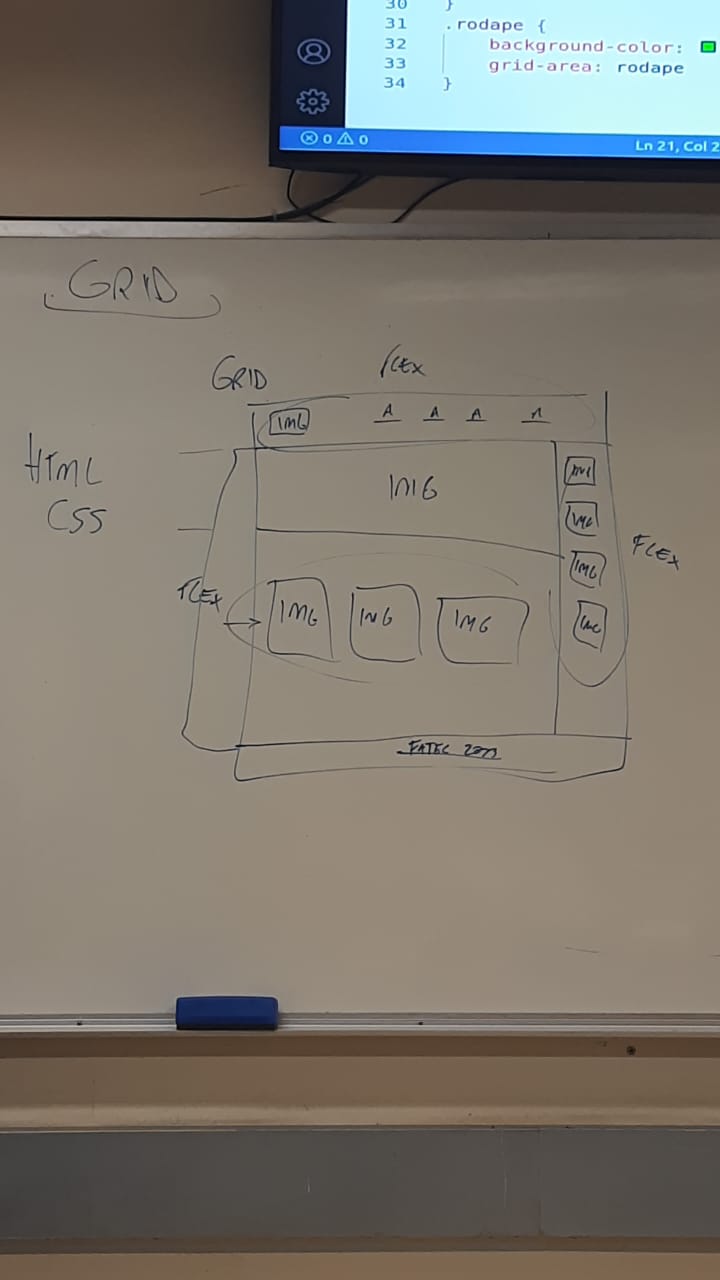 30 }
31 .rodape {
32 background-color:
33 grid-area: rodape
34 }
0 0
Ln 21, Col 2
GRID
GRID
FLEX
IMG A A A A
HTML
CSS
IMG
IMG
IMG
IMG
IMG
FLEX
FLEX
IMG IMG IMG
FATEC